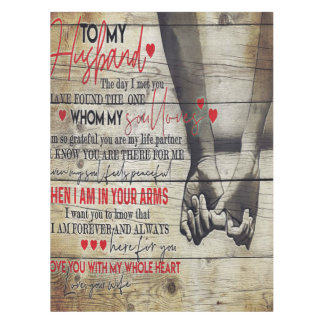 TO MY
Husband
The day I met you
HAVE FOUND THE ONE
WHOM MY soul loves
am so grateful you are my life partner
KNOW YOU ARE THERE FOR ME
even my soul feels peaceful
HEN I AM IN YOUR ARMS
I want you to know that
I AM FOREVER AND ALWAYS
here for you
OVE YOU WITH MY WHOLE HEART
Love, your wife